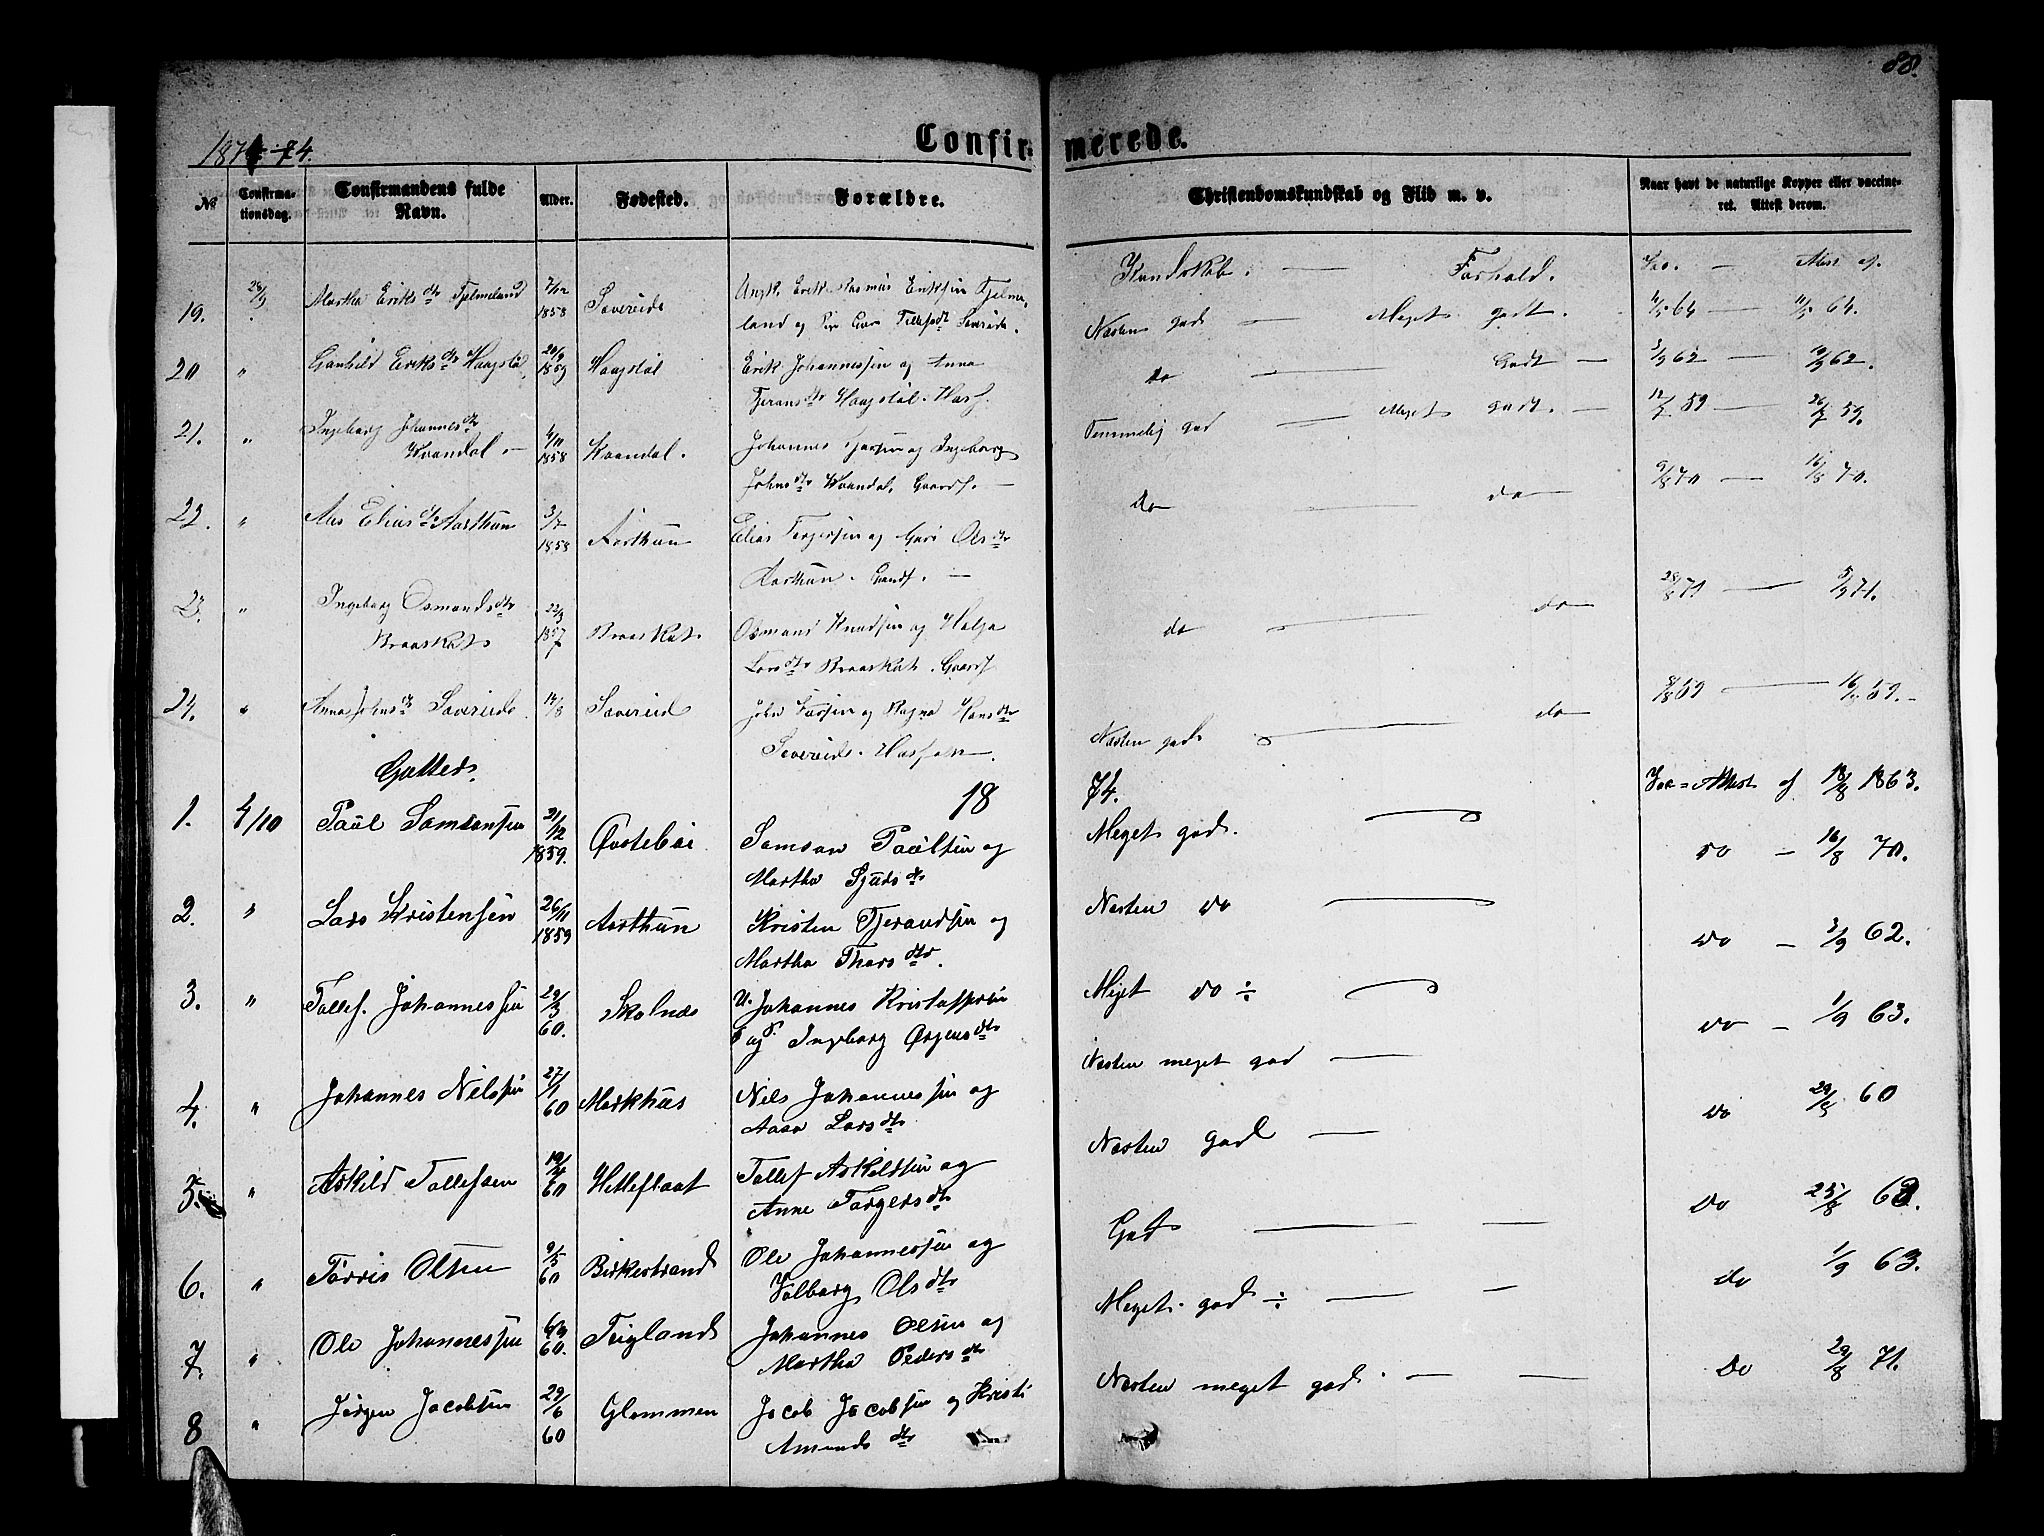 88.
1874.
Confirmerede.
№
Confirma-
tionsdag.
Confirmandens fulde
Navn.
Alder.
Fødested.
Forældre.
Christendomskundskab og Flid m. v.
Naar havt de naturlige Kopper eller vaccine-
ret. Attest derom.
Kundskab. — Forhold.
19. 28/9 Martha Eriksdtr Tjelmeland 7/12 1858 Erik Rasmus Eriksen Tjelme-
land og
Næsten god — Meget godt. 64 — 64.
20 " Gunhild Eriksdtr Haagstøl 1859 Haagstøl Erik Johannessen og Anna
Do — Godt — 3/9 62 — 62.
21. " Ingeborg Johannesdtr
Kvandal. — 4/11 1858 Kvandal. Johannes og Ingeborg
Johnsdtr Kvandal, Gaardf. —
Temmelig god — Meget godt. — 59 — 59.
22. " Eliasdtr Aarthun 3/7 1858 Aarthun Elias Torgersen og Guri Olsdtr
Aarthun. Gaardf. —
Do — do — 9/8 70 — 16/8 70.
23. " Ingeborg Osmundsdtr
22/3 1857 Osmund Knudsen og Helga
Larsdtr
do — do — 28/8 71 — 5/9 71.
24. " Anna Johnsdtr 14/8
John og Hansdtr
Næsten god — do — 8/8 59 — 59.
Gutter
18 74.
1. 4/10 Paul Samsonsen 21/12 1859. Øvstebøe Samson Paulsen og
Martha Sjursdtr
Meget god. — Vac=Attest af 18/8 1863.
2. " Lars Kristensen 26/11 1859 Aarthun Kristen Tjerandsen og
Martha Thorsdtr.
Næsten do — do — 16/8 70.
3. " Tollef. Johannessen 29/3 60. Skolnæs U. Johannes Kristoffersen
og P. Ingeborg Ørjensdtr
Meget do ÷ — do — 3/9 62.
4. " Johannes Nilssen 27/1 60 Markhus Nils Johannessen og
Larsdtr
Næsten meget god — do — 1/9 63.
5. " Askild Tollefsen 19/4 60 Hetleflaat Tollef Askildsen og
Anne Torgersdtr
Næsten god — do 29/8 60
6. " Tørris Olsen 9/5 60 Birkestrand Ole Johannessen og
Valborg Olsdtr
God — do 25/8 62.
7. " Ole Johannessen 60. Teigland Johannes Olsen og
Martha Pedersdtr
Meget god ÷ — do 1/9 63.
8 " Jørgen Jacobsen 29/6 60 Glommen Jacob Jacobsen og Kristi
Amundsdtr
Næsten meget god. — Do 29/8 71.